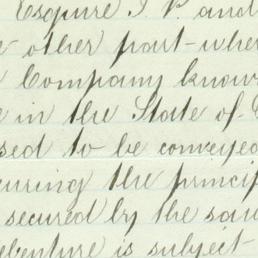 Esquire J. P. and
other part - wher
Company know
in the State of
sed to be conveyed
curing the princip
secured by the sam
ebenture is subject -